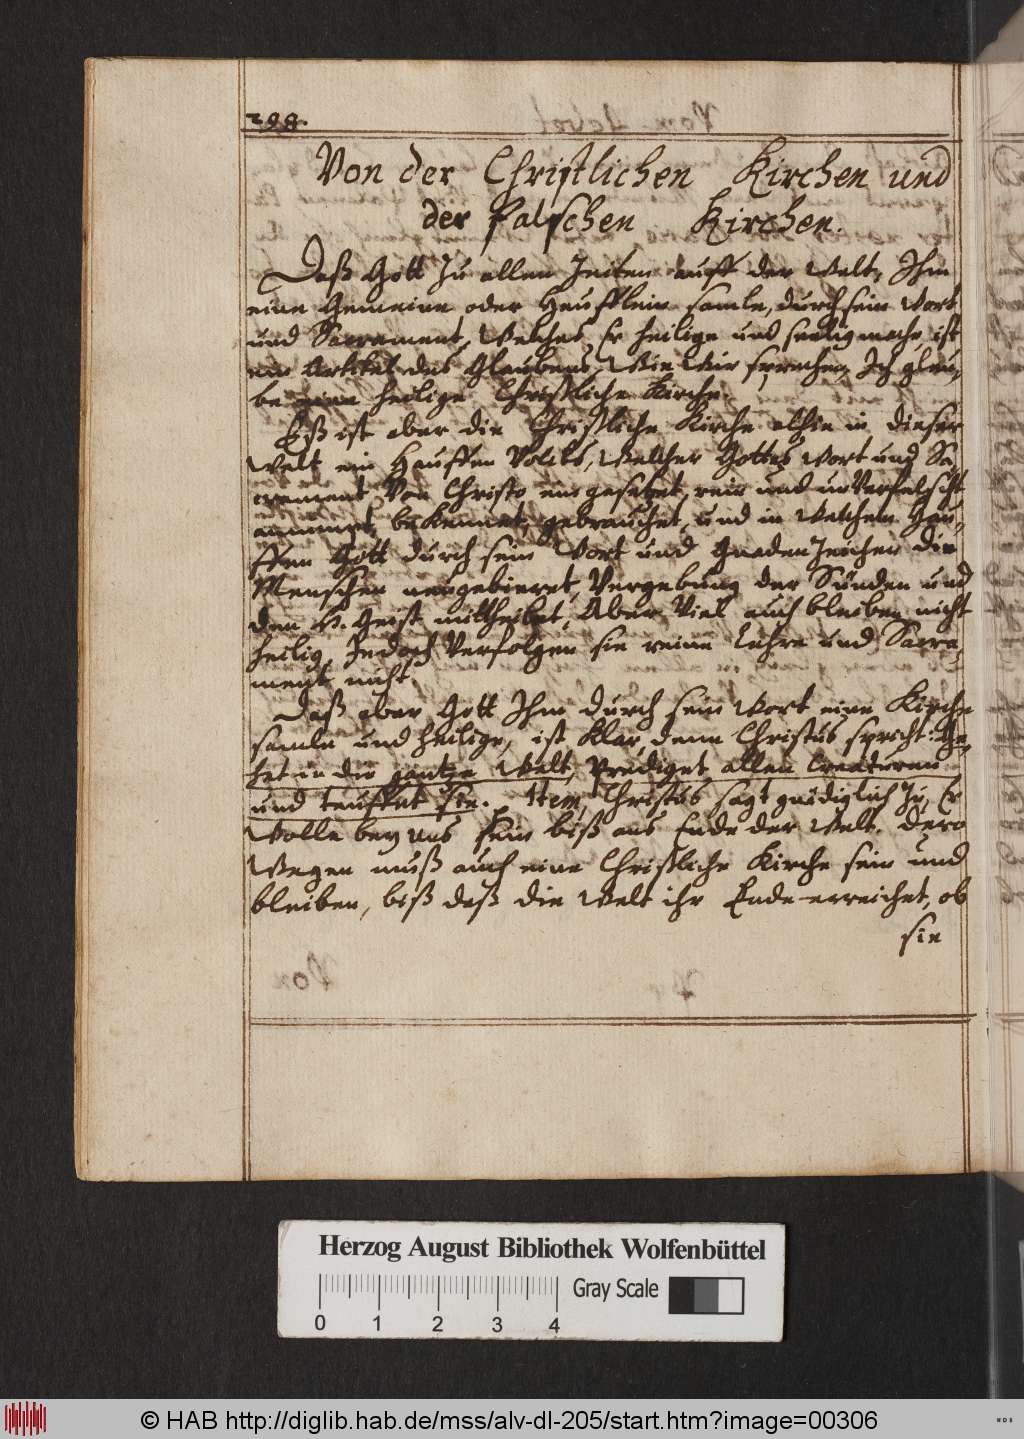 298.
Von der Christlichen Kirchen und
der falschen Kirchen.
Daß Gott zu allen Zeiten auff der Welt, Ihm
eine Gemeine oder Heufflein samle, durch sein Wort
und Sacrament, Welches Er heilige und seelig mache, ist
ein Artikel des Glaubens, Wie Wir sprechen, Ich gleu,
be eine heilige Christliche Kirche.
Eß ist aber die Christliche Kirche alhie in dieser
Welt ein Hauffen Volcks, Welcher Gottes Wort und Sa,
crament Von Christo eingesetzet, rein und unVerfelscht
annimpt, bekennet, gebrauchet, und in Welchem Hau,
ffen Gott durch sein Wort und Gnadenzeichen die
Menschen neugebieret, Vergebung der Sünden und
den H. Geist mittheilet, Aber Viel auch bleiben nicht
heilig, Jedoch Verfolgen sie reine Lehre und Sacra,
ment nicht.
Daß aber Gott Ihm durch sein Wort eine Kirche
samle und heilige, ist klar, denn Christus spricht: Ge,
het in die gantze Welt, Prediget allen Creaturen
und teuffet sie. Item, Christus sagt gnädiglich zu, Er
Wolle bey uns sein biß ans Ende der Welt. Dero
Wegen muß auch eine Christliche Kirche sein und
bleiben, biß daß die Welt ihr Ende erreichet, ob
sie
Herzog August Bibliothek Wolfenbüttel
Gray Scale
0 1 2 3 4
© HAB http://diglib.hab.de/mss/alv-dl-205/start.htm?image=00306